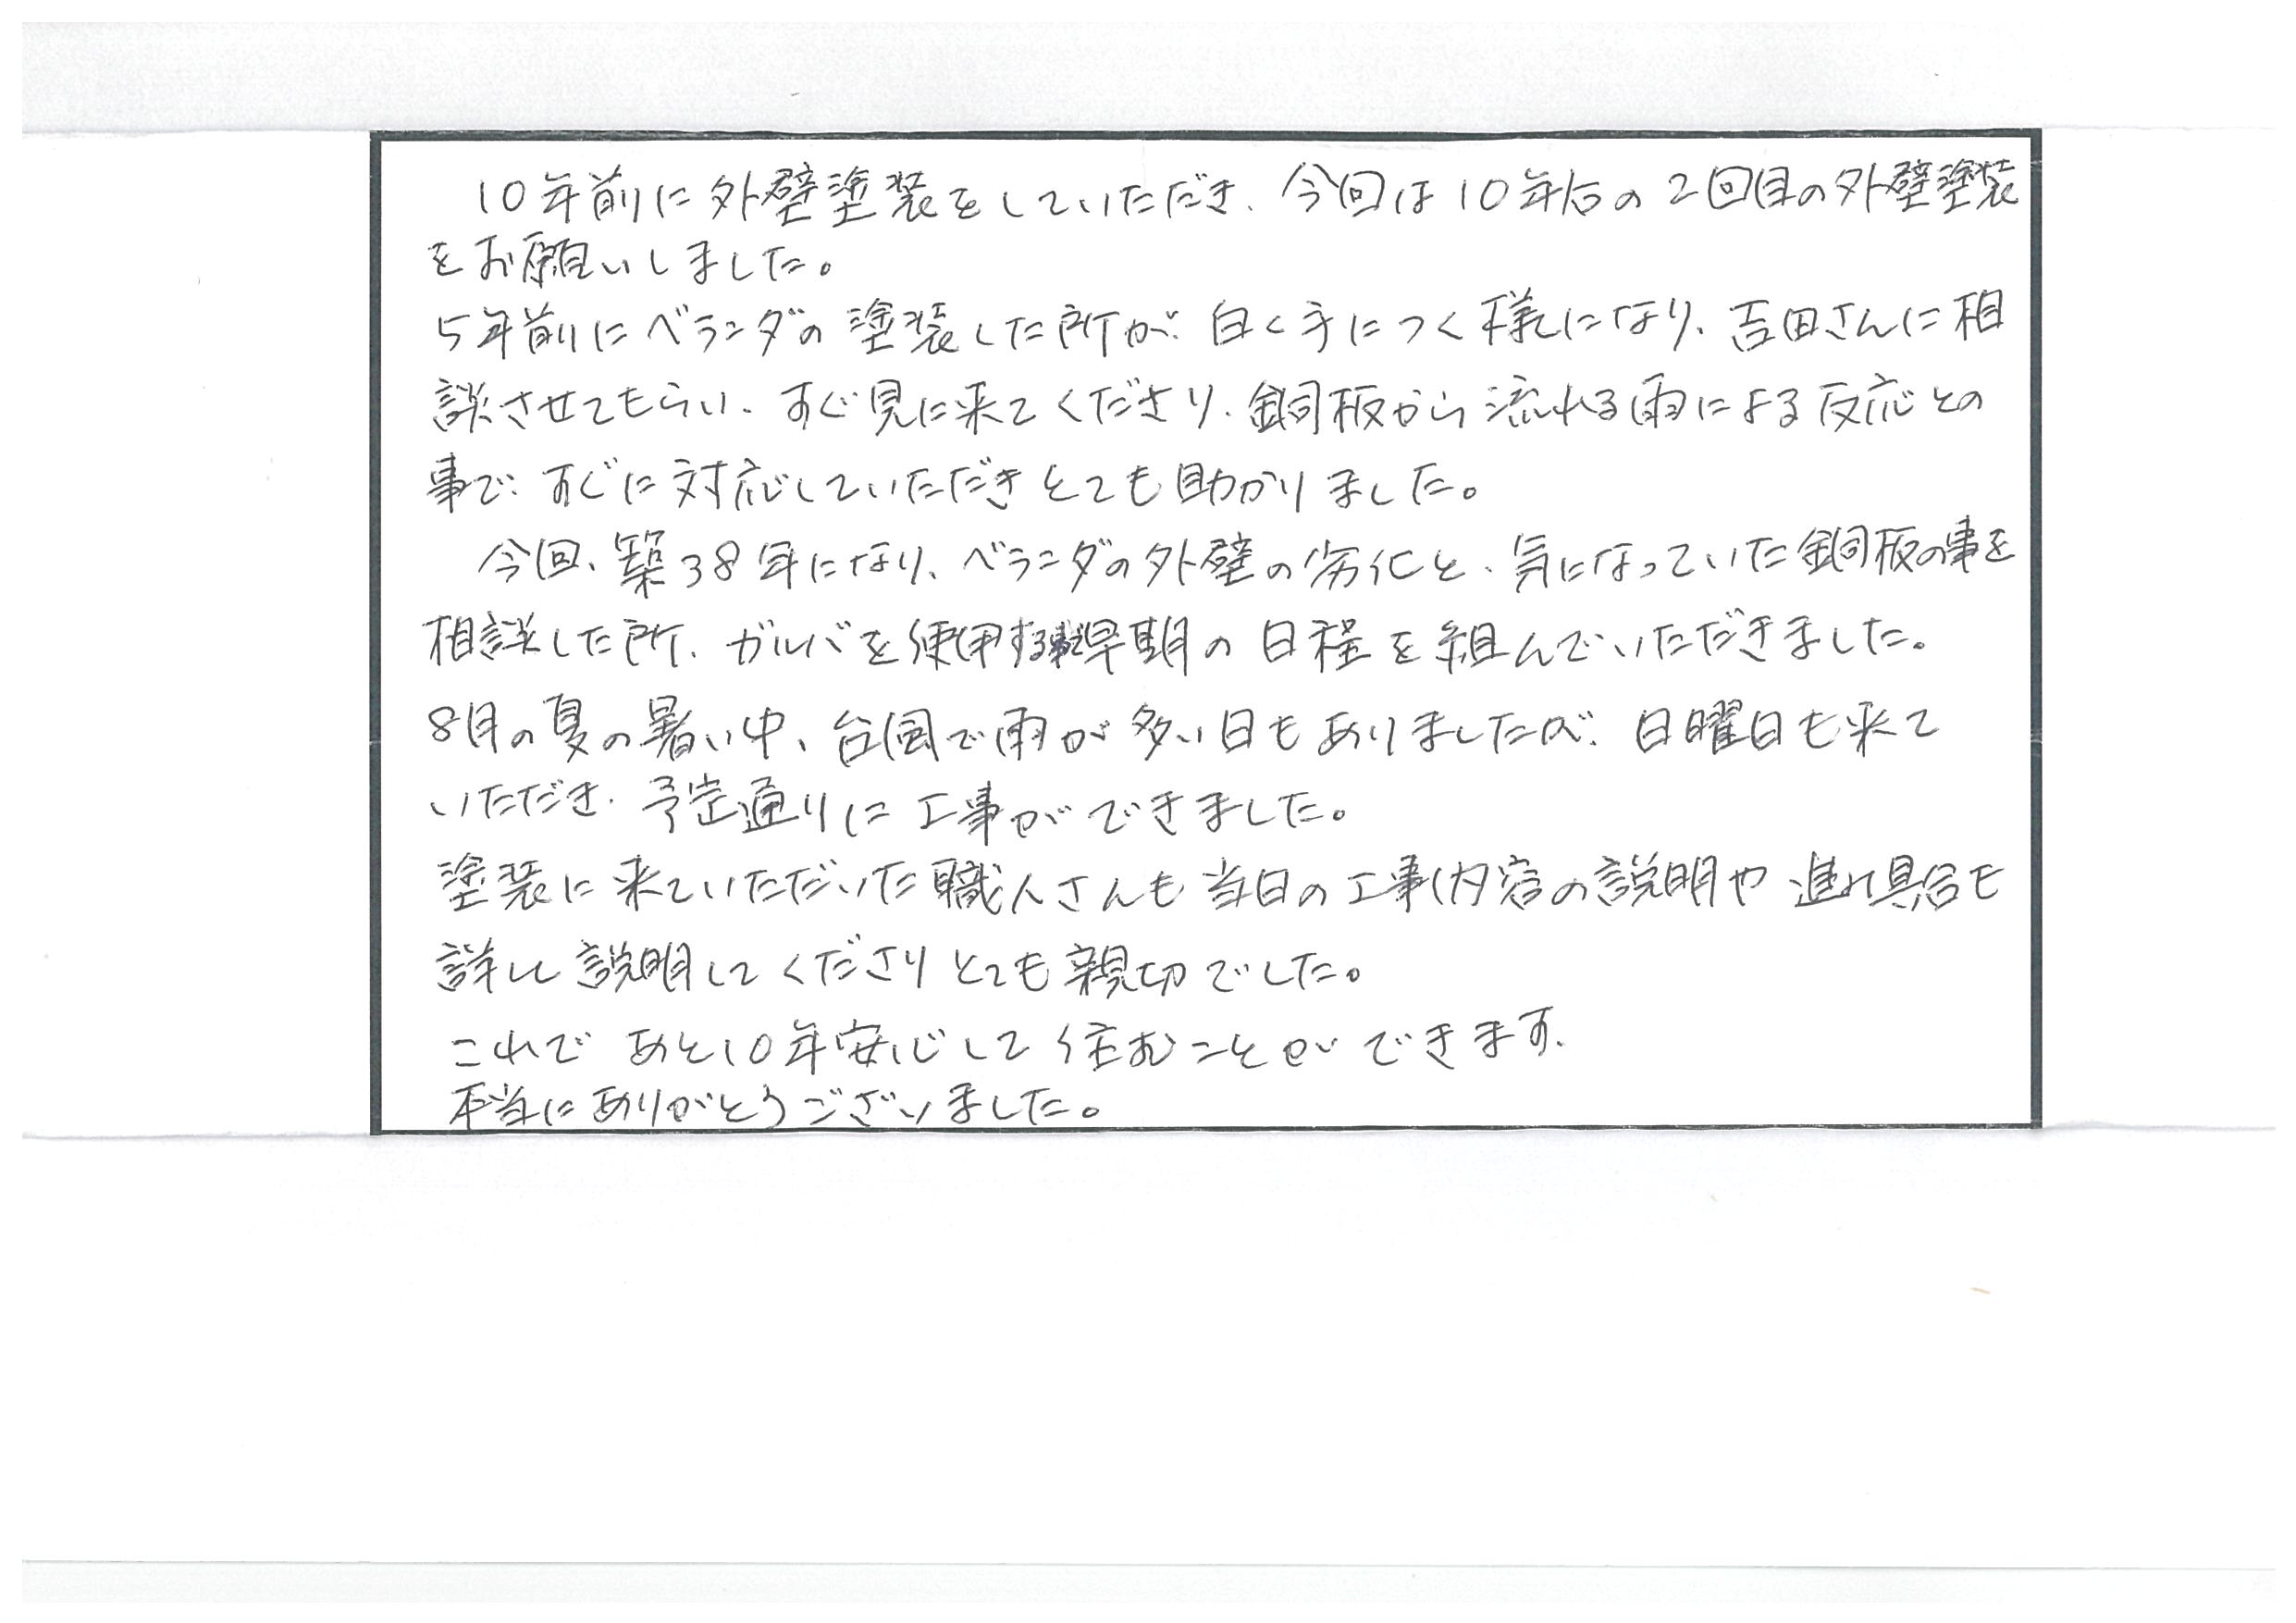 10年前に外壁塗装をしていただき、今回は10年后の2回目の外壁塗装
をお願いしました。
5年前にベランダの塗装した所が、白く手につく様になり、吉田さんに相
談させてもらい、すぐ見に来てくださり、銅板から流れる雨による反応との
事で、すぐに対応していただきとても助かりました。
今回、築38年になり、ベランダの外壁の劣化と、気になっていた銅板の事を
相談した所、ガルバを使用する事で早期の日程を組んでいただきました。
8月の夏の暑い中、台風で雨が多い日もありましたが、日曜日も来て
いただき、予定通りに工事ができました。
塗装に来ていただいた職人さんも当日の工事内容の説明や進み具合も
詳しく説明してくださりとても親切でした。
これであと10年安心して住むことができます。
本当にありがとうございました。